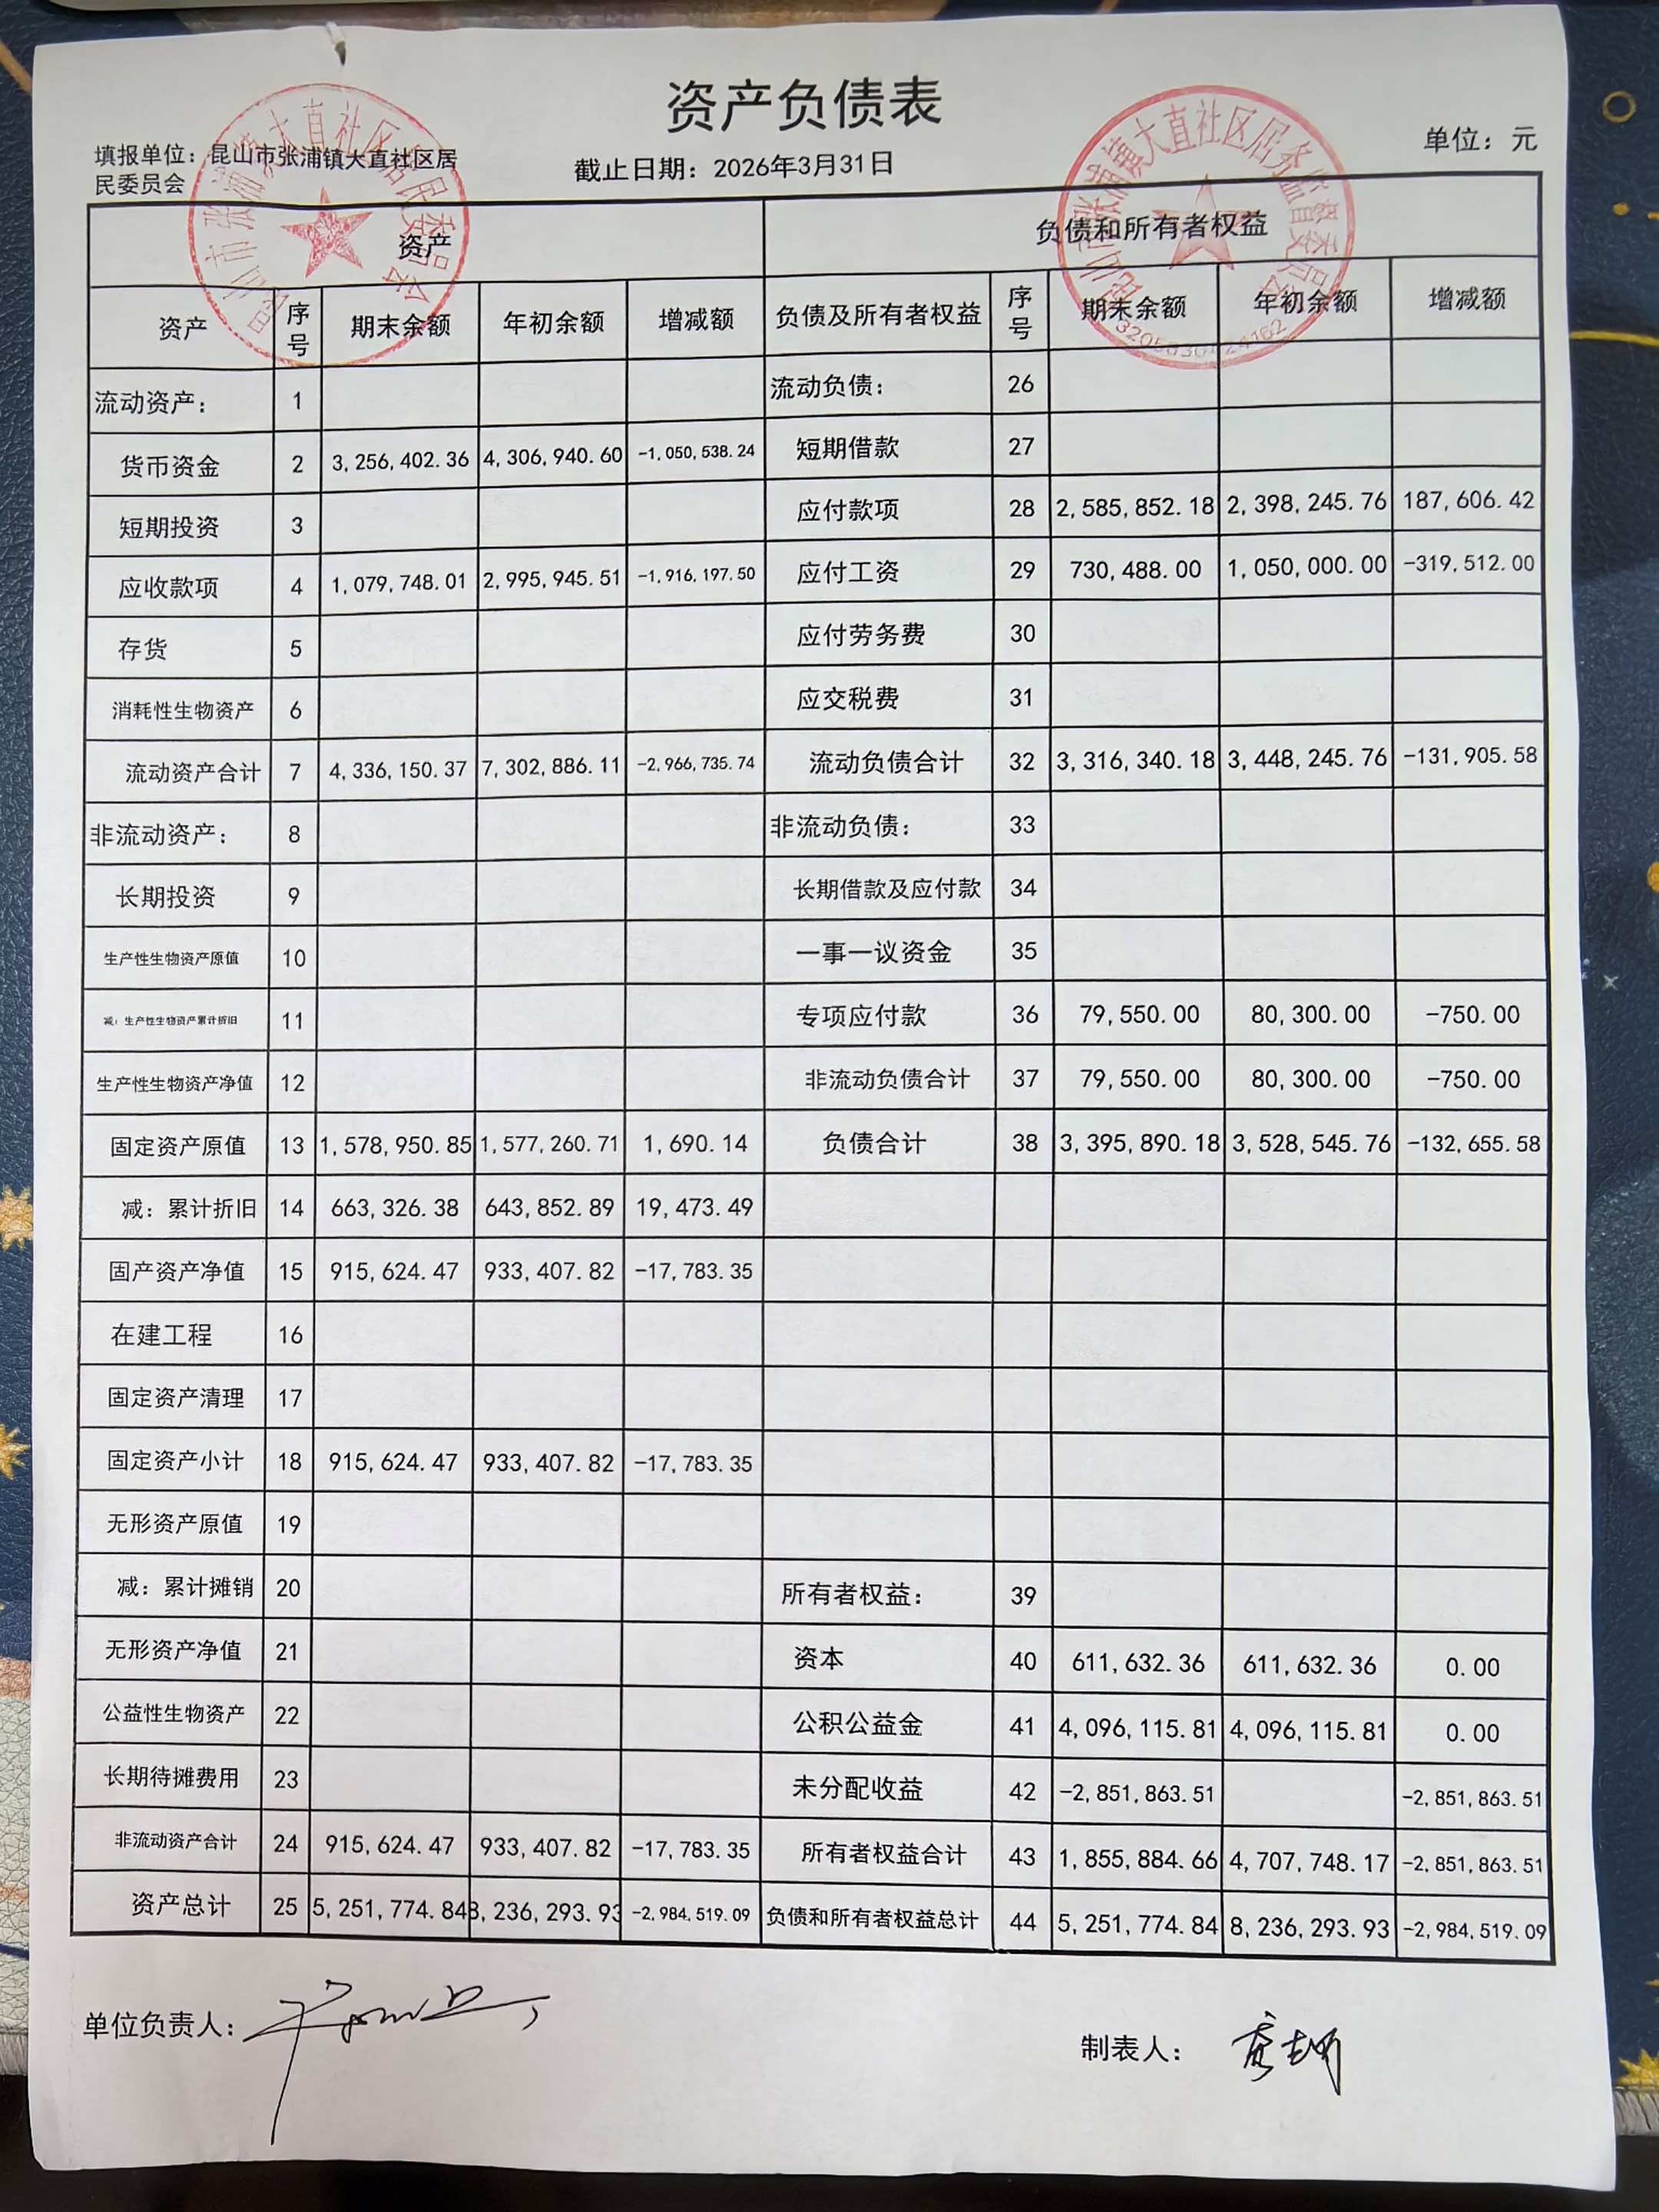 资产负债表
填报单位：昆山市张浦镇大直社区居
民委员会
截止日期：2026年3月31日
单位：元
资产 负债和所有者权益
资产 序号 期末余额 年初余额 增减额 负债及所有者权益 序号 期末余额 年初余额 增减额
流动资产： 1 流动负债： 26
货币资金 2 3,256,402.36 4,306,940.60 -1,050,538.24 短期借款 27
短期投资 3 应付款项 28 2,585,852.18 2,398,245.76 187,606.42
应收款项 4 1,079,748.01 2,995,945.51 -1,916,197.50 应付工资 29 730,488.00 1,050,000.00 -319,512.00
存货 5 应付劳务费 30
消耗性生物资产 6 应交税费 31
流动资产合计 7 4,336,150.37 7,302,886.11 -2,966,735.74 流动负债合计 32 3,316,340.18 3,448,245.76 -131,905.58
非流动资产： 8 非流动负债： 33
长期投资 9 长期借款及应付款 34
生产性生物资产原值 10 一事一议资金 35
减：生产性生物资产累计折旧 11 专项应付款 36 79,550.00 80,300.00 -750.00
生产性生物资产净值 12 非流动负债合计 37 79,550.00 80,300.00 -750.00
固定资产原值 13 1,578,950.85 1,577,260.71 1,690.14 负债合计 38 3,395,890.18 3,528,545.76 -132,655.58
减：累计折旧 14 663,326.38 643,852.89 19,473.49
固产资产净值 15 915,624.47 933,407.82 -17,783.35
在建工程 16
固定资产清理 17
固定资产小计 18 915,624.47 933,407.82 -17,783.35
无形资产原值 19
减：累计摊销 20 所有者权益： 39
无形资产净值 21 资本 40 611,632.36 611,632.36 0.00
公益性生物资产 22 公积公益金 41 4,096,115.81 4,096,115.81 0.00
长期待摊费用 23 未分配收益 42 -2,851,863.51 -2,851,863.51
非流动资产合计 24 915,624.47 933,407.82 -17,783.35 所有者权益合计 43 1,855,884.66 4,707,748.17 -2,851,863.51
资产总计 25 5,251,774.84 8,236,293.93 -2,984,519.09 负债和所有者权益总计 44 5,251,774.84 8,236,293.93 -2,984,519.09
单位负责人：
制表人：
昆山市张浦镇大直社区居民委员会
昆山市张浦镇大直社区居务监督委员会